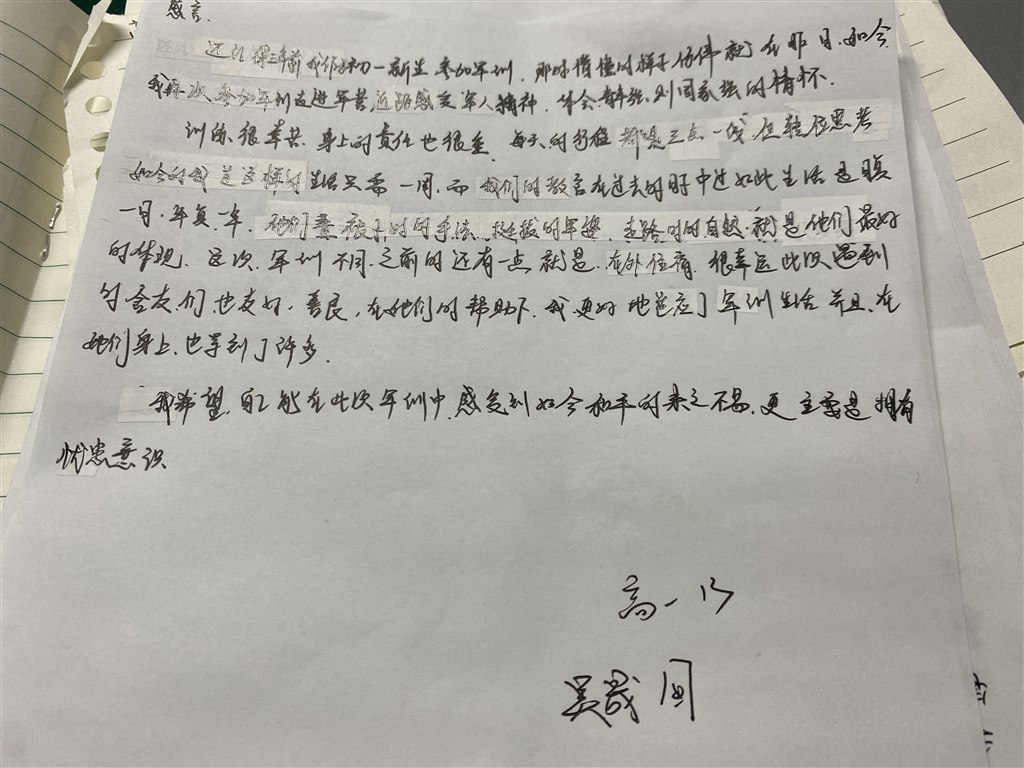 感言.
还记得三年前我作为初一新生参加军训，那时懵懂的样子仿佛就在昨日.如今
我再次参加军训走进军营，近距感受军人精神，体会青年强，则国家强的情怀.
训练很辛苦.身上的责任也很重，每天的行程都是三点一线，但转位思考
如今的我是这样的生活只需一周，而我们的教官在过去的时中过如此生活是
一日，年复一年.他们叠被子时的手法.挺拔的军姿，走路时的自然就是他们最好
的体现.这次.军训不同之前的还有一点就是.在外住宿.很幸运此次遇到
的舍友们也友好，善良，在她们的帮助下.我更好地适应了军训生活并且.在
她们身上.也学到了许多.
我希望，自己能在此次军训中.感受到如今和平的来之不易.更主要是拥有
忧患意识
高一13
吴